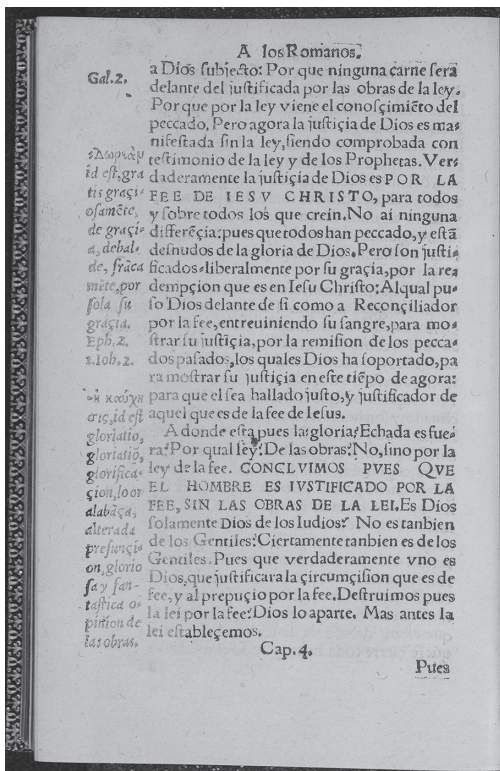 A los Romanos.
Gal. 2.
a Dios subjecto: Por que ninguna carne sera
delante del justificada por las obras de la ley.
Por que por la ley viene el conosçimiẽto del
peccado. Pero agora la justiçia de Dios es ma-
nifestada sin la ley, siendo comprobada con
testimonio de la ley y de los Prophetas. Ver-
daderamente la justiçia de Dios es POR LA
FEE DE IESV CHRISTO, para todos
y sobre todos los que creín. No ai ninguna
differẽçia: pues que todos han peccado, y estã
desnudos de la gloria de Dios. Pero son justi-
ficados liberalmente por su graçia, por la re-
dempçion que es en Iesu Christo: Al qual pu-
so Dios delante de si como a Reconçiliador
por la fee, entreuiniendo su sangre, para mo-
strar su justiçia, por la remision de los pecca-
dos pasados, los quales Dios ha soportado, pa
ra mostrar su justiçia en este tiẽpo de agora:
para que el sea hallado justo, y justificador de
aquel que es de la fee de Iesus.
A donde esta pues la gloria? Echada es fue-
ra? Por qual ley? De las obras? No, sino por la
ley de la fee. CONCLVIMOS PVES QVE
EL HOMBRE ES IVSTIFICADO POR LA
FEE, SIN LAS OBRAS DE LA LEI. Es Dios
solamente Dios de los Iudios? No es tanbien
de los Gentiles? Ciertamente tanbien es de los
Gentiles. Pues que verdaderamente vno es
Dios, que justificara la çircumçision que es de
fee, y al prepuçio por la fee. Destruimos pues
la lei por la fee? Dios lo aparte. Mas antes la
lei estableçemos.
Δωρεὰν
id est, gra
tis graçi-
osamẽte,
de graçi-
a, debal-
de, frãca
mẽte, por
sola su
graçia.
Eph. 2.
1. Ioh. 2.
ἡ καύχη
σις, id est
gloriatio,
gloriatiõ,
glorifica-
çion, loor
alabãça,
alterada
presunçi-
on, glorio
sa y fan-
tastica o-
pinion de
las obras.
Cap. 4.
Pues